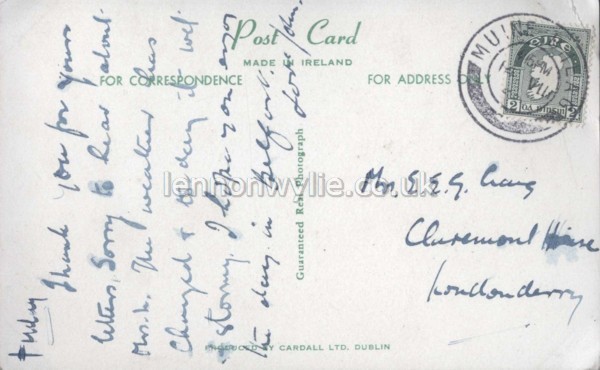 Post Card
MADE IN IRELAND
FOR CORRESPONDENCE
FOR ADDRESS ONLY
Guaranteed Real Photograph
PRODUCED BY CARDALL LTD. DUBLIN
lennonwylie.co.uk
Thank you for yours
letters, Sorry to hear about
Mrs. The weather has
Changed & the day is wet
& stormy. I hope you enjoy
the day in Belfast.
Love
Mrs. E.E.G. Craig
Claremont House
Londonderry
MUINE
2 2